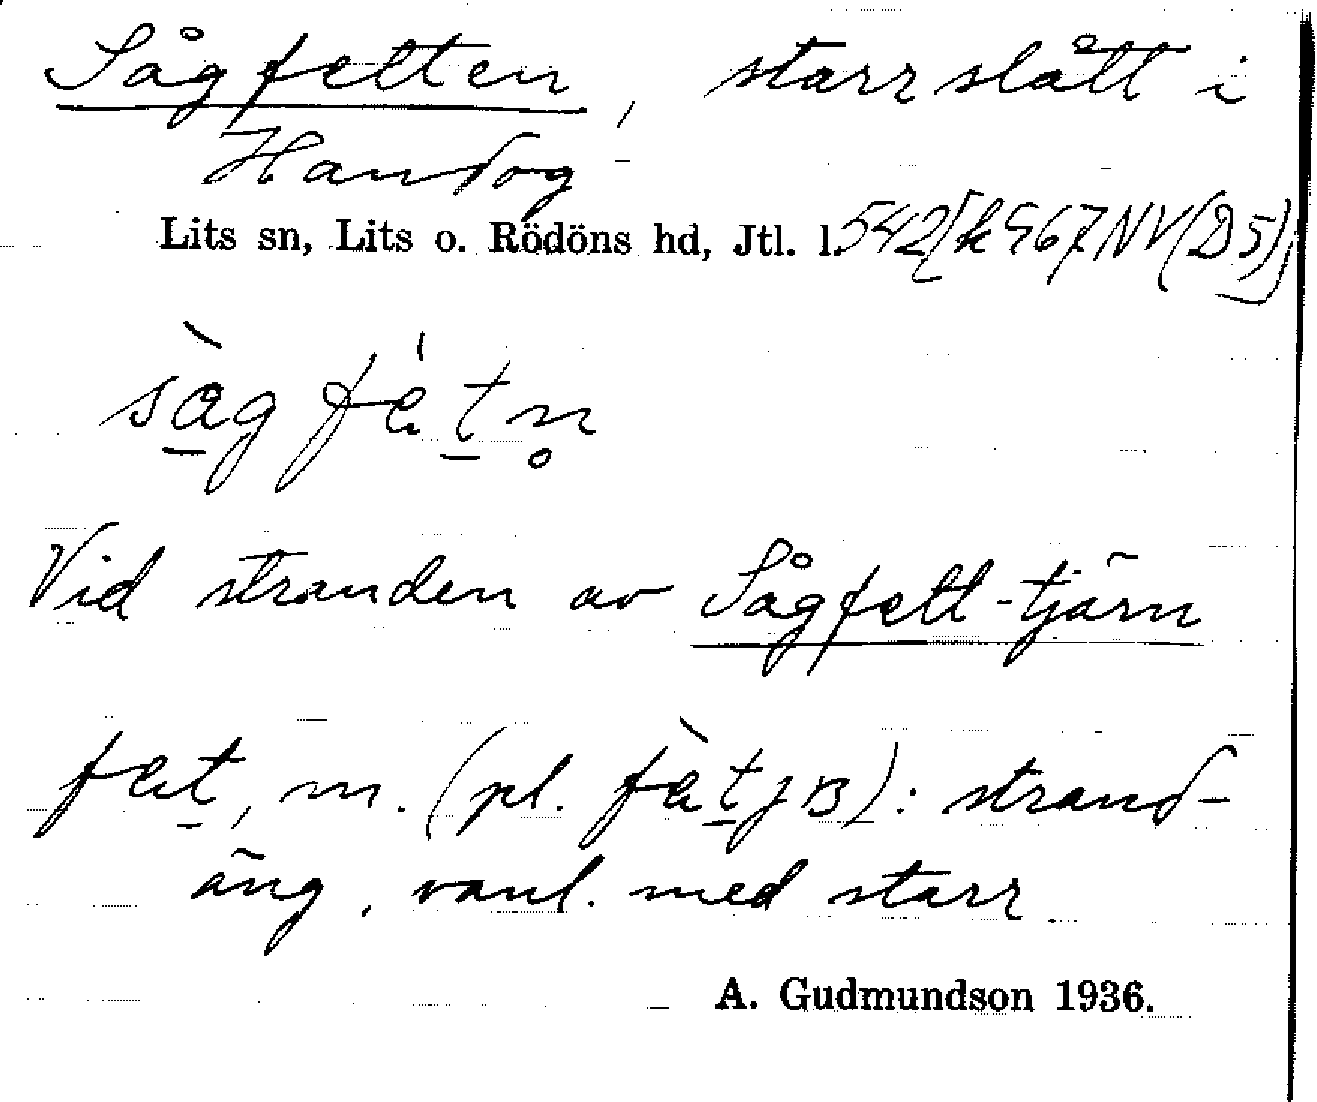 Sågfetten, starrslått i
Handog
Lits sn, Lits o. Rödöns hd, Jtl. l. 542[k 967 NV(D5)]
sàgfétn̥
Vid stranden av Sågfett-tjärn
fet, m. (pl. fètjɐ): strand-
äng, vanl. med starr
A. Gudmundson 1936.